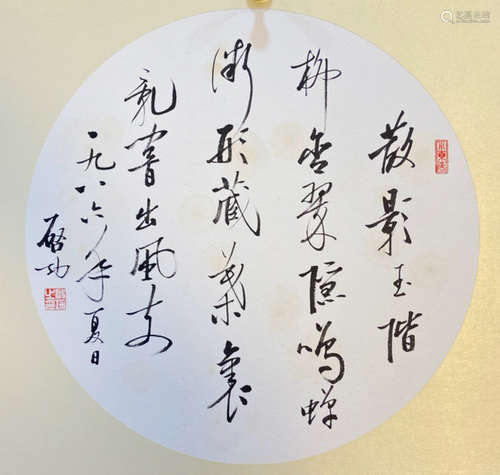 散影玉階
柳含翠隱鳴蟬
微形藏葉裏
乱響出風枝
一九八六年夏日
啓功